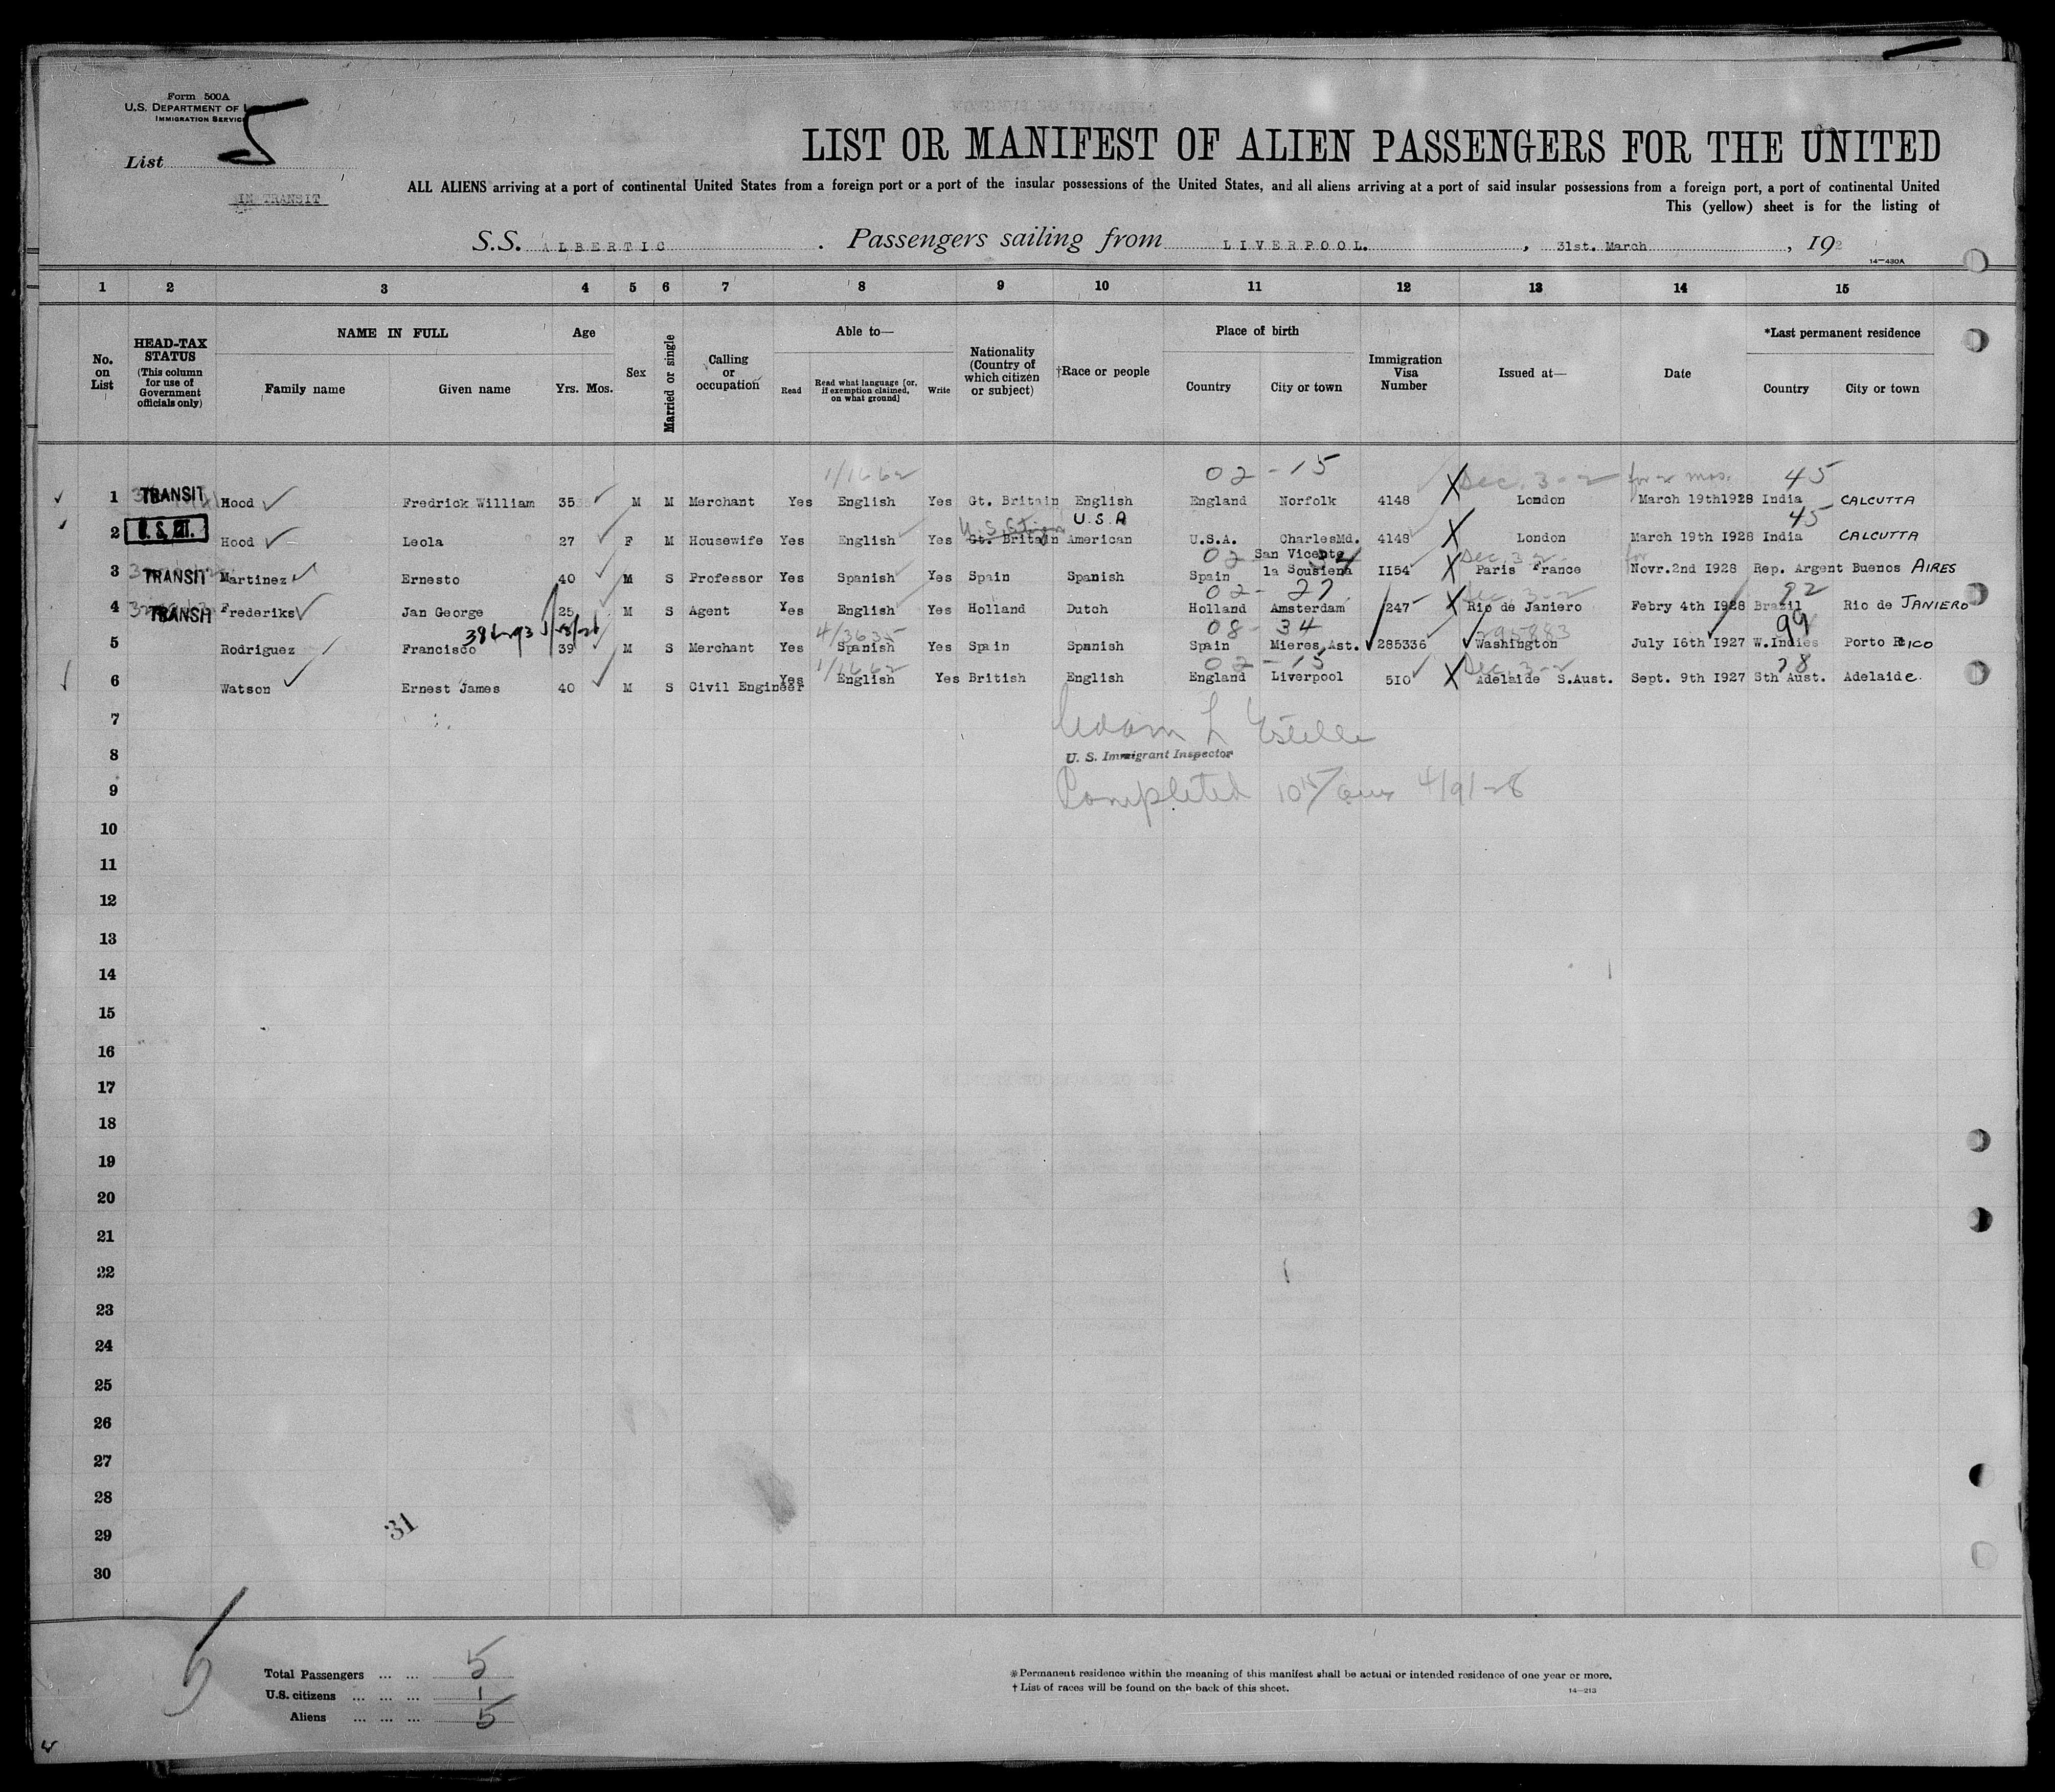 Form 500A
U.S. DEPARTMENT OF
IMMIGRATION SERVICE
List 5
IN TRANSIT
LIST OR MANIFEST OF ALIEN PASSENGERS FOR THE UNITED
ALL ALIENS arriving at a port of continental United States from a foreign port or a port of the insular possessions of the United States, and all aliens arriving at a port of said insular possessions from a foreign port, a port of continental United
This (yellow) sheet is for the listing of
S.S. ALBERTIC. Passengers sailing from LIVERPOOL., 31st. March, 192
14—430A
1 2 3 4 5 6 7 8 9 10 11 12 13 14 15
No. on List
HEAD-TAX STATUS (This column for use of Government officials only)
NAME IN FULL
Family name Given name
Age
Yrs. Mos.
Sex
Married or single
Calling or occupation
Able to—
Read Read what language [or, if exemption claimed, on what ground] Write
Nationality (Country of which citizen or subject)
†Race or people
Place of birth
Country City or town
Immigration Visa Number
Issued at—
Date
*Last permanent residence
Country City or town
1/1662 02-15 Dec. 3-2 for 2 mos. 45
1 TRANSIT Hood Fredrick William 35 M M Merchant Yes English Yes Gt. Britain English England Norfolk 4148 X London March 19th1928 India CALCUTTA
U.S.A 45
2 Hood Leola 27 F M Housewife Yes English Yes Gt. Britain American U.S.A. CharlesMd. 4148 X London March 19th 1928 India CALCUTTA
02 San Vicente 34 Dec. 3-2 for
3 TRANSIT Martinez Ernesto 40 M S Professor Yes Spanish Yes Spain Spanish Spain la Sousiena 1154 X Paris France Novr.2nd 1928 Rep. Argent Buenos AIRES
02-27 Dec. 3-2 92
4 TRANSIT Frederiks Jan George 25 M S Agent Yes English Yes Holland Dutch Holland Amsterdam 247 X Rio de Janiero Febry 4th 1928 Brazil Rio de JANIERO
4/3635 08-34 295883 99
5 Rodriguez Francisco 39 M S Merchant Yes Spanish Yes Spain Spanish Spain Mieres Ast. 285336 Washington July 16th 1927 W.Indies Porto RICO
1/1662 02-15 Dec. 3-2 78
6 Watson Ernest James 40 M S Civil Engineer Yes English Yes British English England Liverpool 510 X Adelaide S.Aust. Sept. 9th 1927 Sth Aust. Adelaide
7
8 U. S. Immigrant Inspector
9 Completed 4/9/28
10
11
12
13
14
15
16
17
18
19
20
21
22
23
24
25
26
27
28
29
31
30
Total Passengers ... ... 5
U.S. citizens ... ... ... 1
Aliens ... ... ... 5
*Permanent residence within the meaning of this manifest shall be actual or intended residence of one year or more.
†List of races will be found on the back of this sheet.
14—213